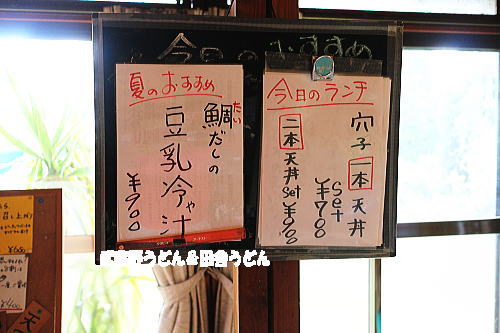 今日のおすすめ
夏のおすすめ
鯛だしの
たい
豆乳冷や汁
¥900
今日のランチ
穴子一本天丼
set
¥700
二本天丼set
うどん&田舎うどん
¥400